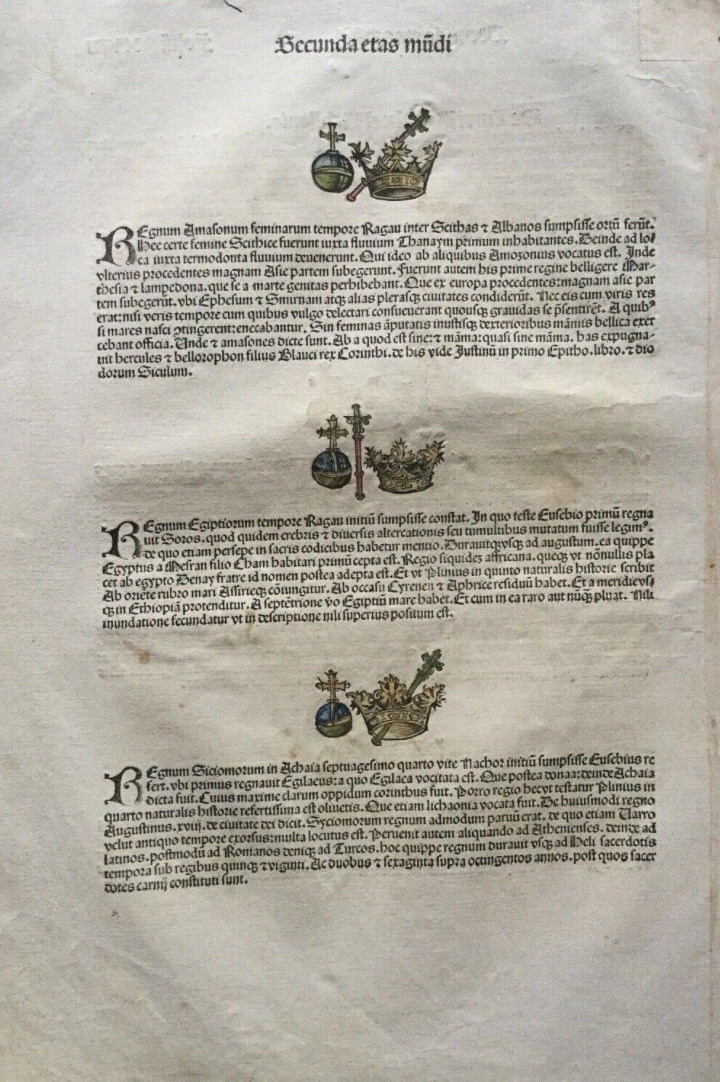 Secunda etas mũdi
REgnum Amasonum feminarum tempore Ragau inter Scithas ⁊ Albanos sumpsisse ortũ ferũt.
Hee certe femine Scithice fuerunt iuxta fluuium Thanaym primum inhabitantes. Deinde ad lo/
ca iuxta termodonta fluuium deuenerunt. Qui ideo ab aliquibus Amozonius vocatus est. Inde
vlterius procedentes magnam Asie partem subegerunt. Fuerunt autem his prime regine belligere Mar-
thesia ⁊ lampedona. que se a marte genitas perhibebant. Que ex europa procedentes: magnam asie par
tem subegerũt. vbi Ephesum ⁊ Smirnam atqꝫ alias plerasqꝫ ciuitates condiderũt. Nec eis cum viris res
erat: nisi veris tempore cum quibus vulgo delectari consueuerant quousqꝫ grauidas se p̃sentirẽt. A quibꝰ
si mares nasci ↄtingerent: enecabantur. Sin feminas ãputatis inustisqꝫ dexterioribus mãmis bellica exer
cebant officia. Unde ⁊ amasones dicte sunt. Ab a quod est sine: ⁊ mãma: quasi sine mãma. has expugna-
uit hercules ⁊ bellorophon filius Glauci rex Corinthi. de his vide Justinũ in primo Epitho. libro. ⁊ dio
dorum Siculum.
REgnum Egiptiorum tempore Ragau initiũ sumpsisse constat. In quo teste Eusebio primũ regna
uit Soros. quod quidem crebris ⁊ diuersis altercationis seu tumultibus mutatum fuisse legimꝰ.
de quo etiam persepe in sacris codicibus habetur mentio. Durauitqꝫ vsqꝫ ad augustum. ea quippe
Egyptus a Mesran filio Cham habitari primũ cepta est. Regio siquidẽ affricana. queqꝫ vt nõnullis pla
cet ab egypto Denay fratre id nomen postea adepta est. Et vt Plinius in quinto naturalis historie scribit
Ab oriẽte rubro mari Assirieqꝫ cõiungitur. Ab occasu Cyrenen ⁊ Aphrice residuũ habet. Et a meridie vs/
qꝫ in Ethiopiã protenditur. A septẽtrione ṽo Egiptiũ mare habet. Et cum in ea raro aut nũqꝫ pluat. Nili
inundatione fecundatur vt in descriptione nili superius positum est.
REgnum Siciomorum in Achaia septuagesimo quarto vite Nachor initiũ sumpsisse Eusebius re
fert. vbi primus regnauit Egilaeus: a quo Egilaea vocitata est. Que postea donaa: deinde Achaia
dicta fuit. Cuius maxime clarum oppidum corinthus fuit. Porro regio hec vt testatur Plinius in
quarto naturalis historie refertissima est oliuetis. Que etiam lichaonia vocata fuit. De huiusmodi regno
Augustinus. xviij. de ciuitate dei dicit. Syciomorum regnum admodum paruũ erat. de quo etiam Uarro
velut antiquo tempore exorsus: multa locutus est. Peruenit autem aliquando ad Athenienses. deinde ad
latinos. postmodũ ad Romanos deniqꝫ ad Turcos. hoc quippe regnum durauit vsqꝫ ad Heli sacerdotis
tempora sub regibus quinqꝫ ⁊ viginti. Ac duobus ⁊ sexaginta supra octingentos annos. post quos sacer
dotes carnij constituti sunt.